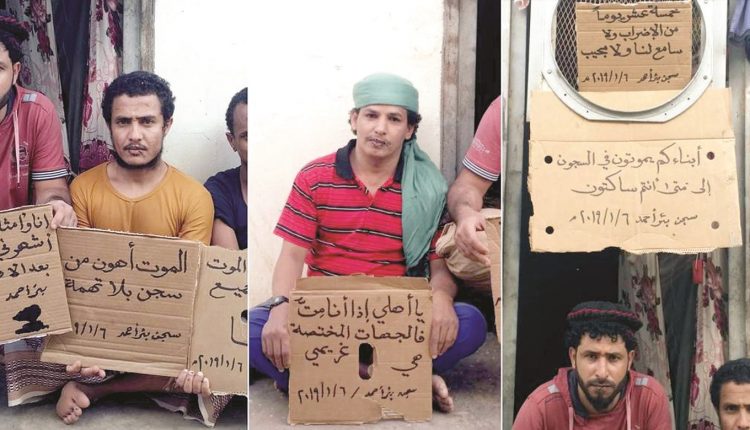 أنا وأمثا
أشعر في
بعد الا
بئر أحمد
الموت أهون من
سجن بلا تهمة
سجن بئر أحمد ١/٦
الموت
ميع
٢٠١٩/١/٦م
يا أهلي إذا أنا مت
فالجهات المختصة
هي غريمي
سجن بئر أحمد / ٢٠١٩/١/٦
خمسة عشر يوماً
من الإضراب ولا
سامع لنا ولا مجيب
سجن بئر أحمد ٢٠١٩/١/٦م
أبناءكم يموتون في السجون
إلى متى أنتم ساكتون
سجن بئر أحمد ٢٠١٩/١/٦م